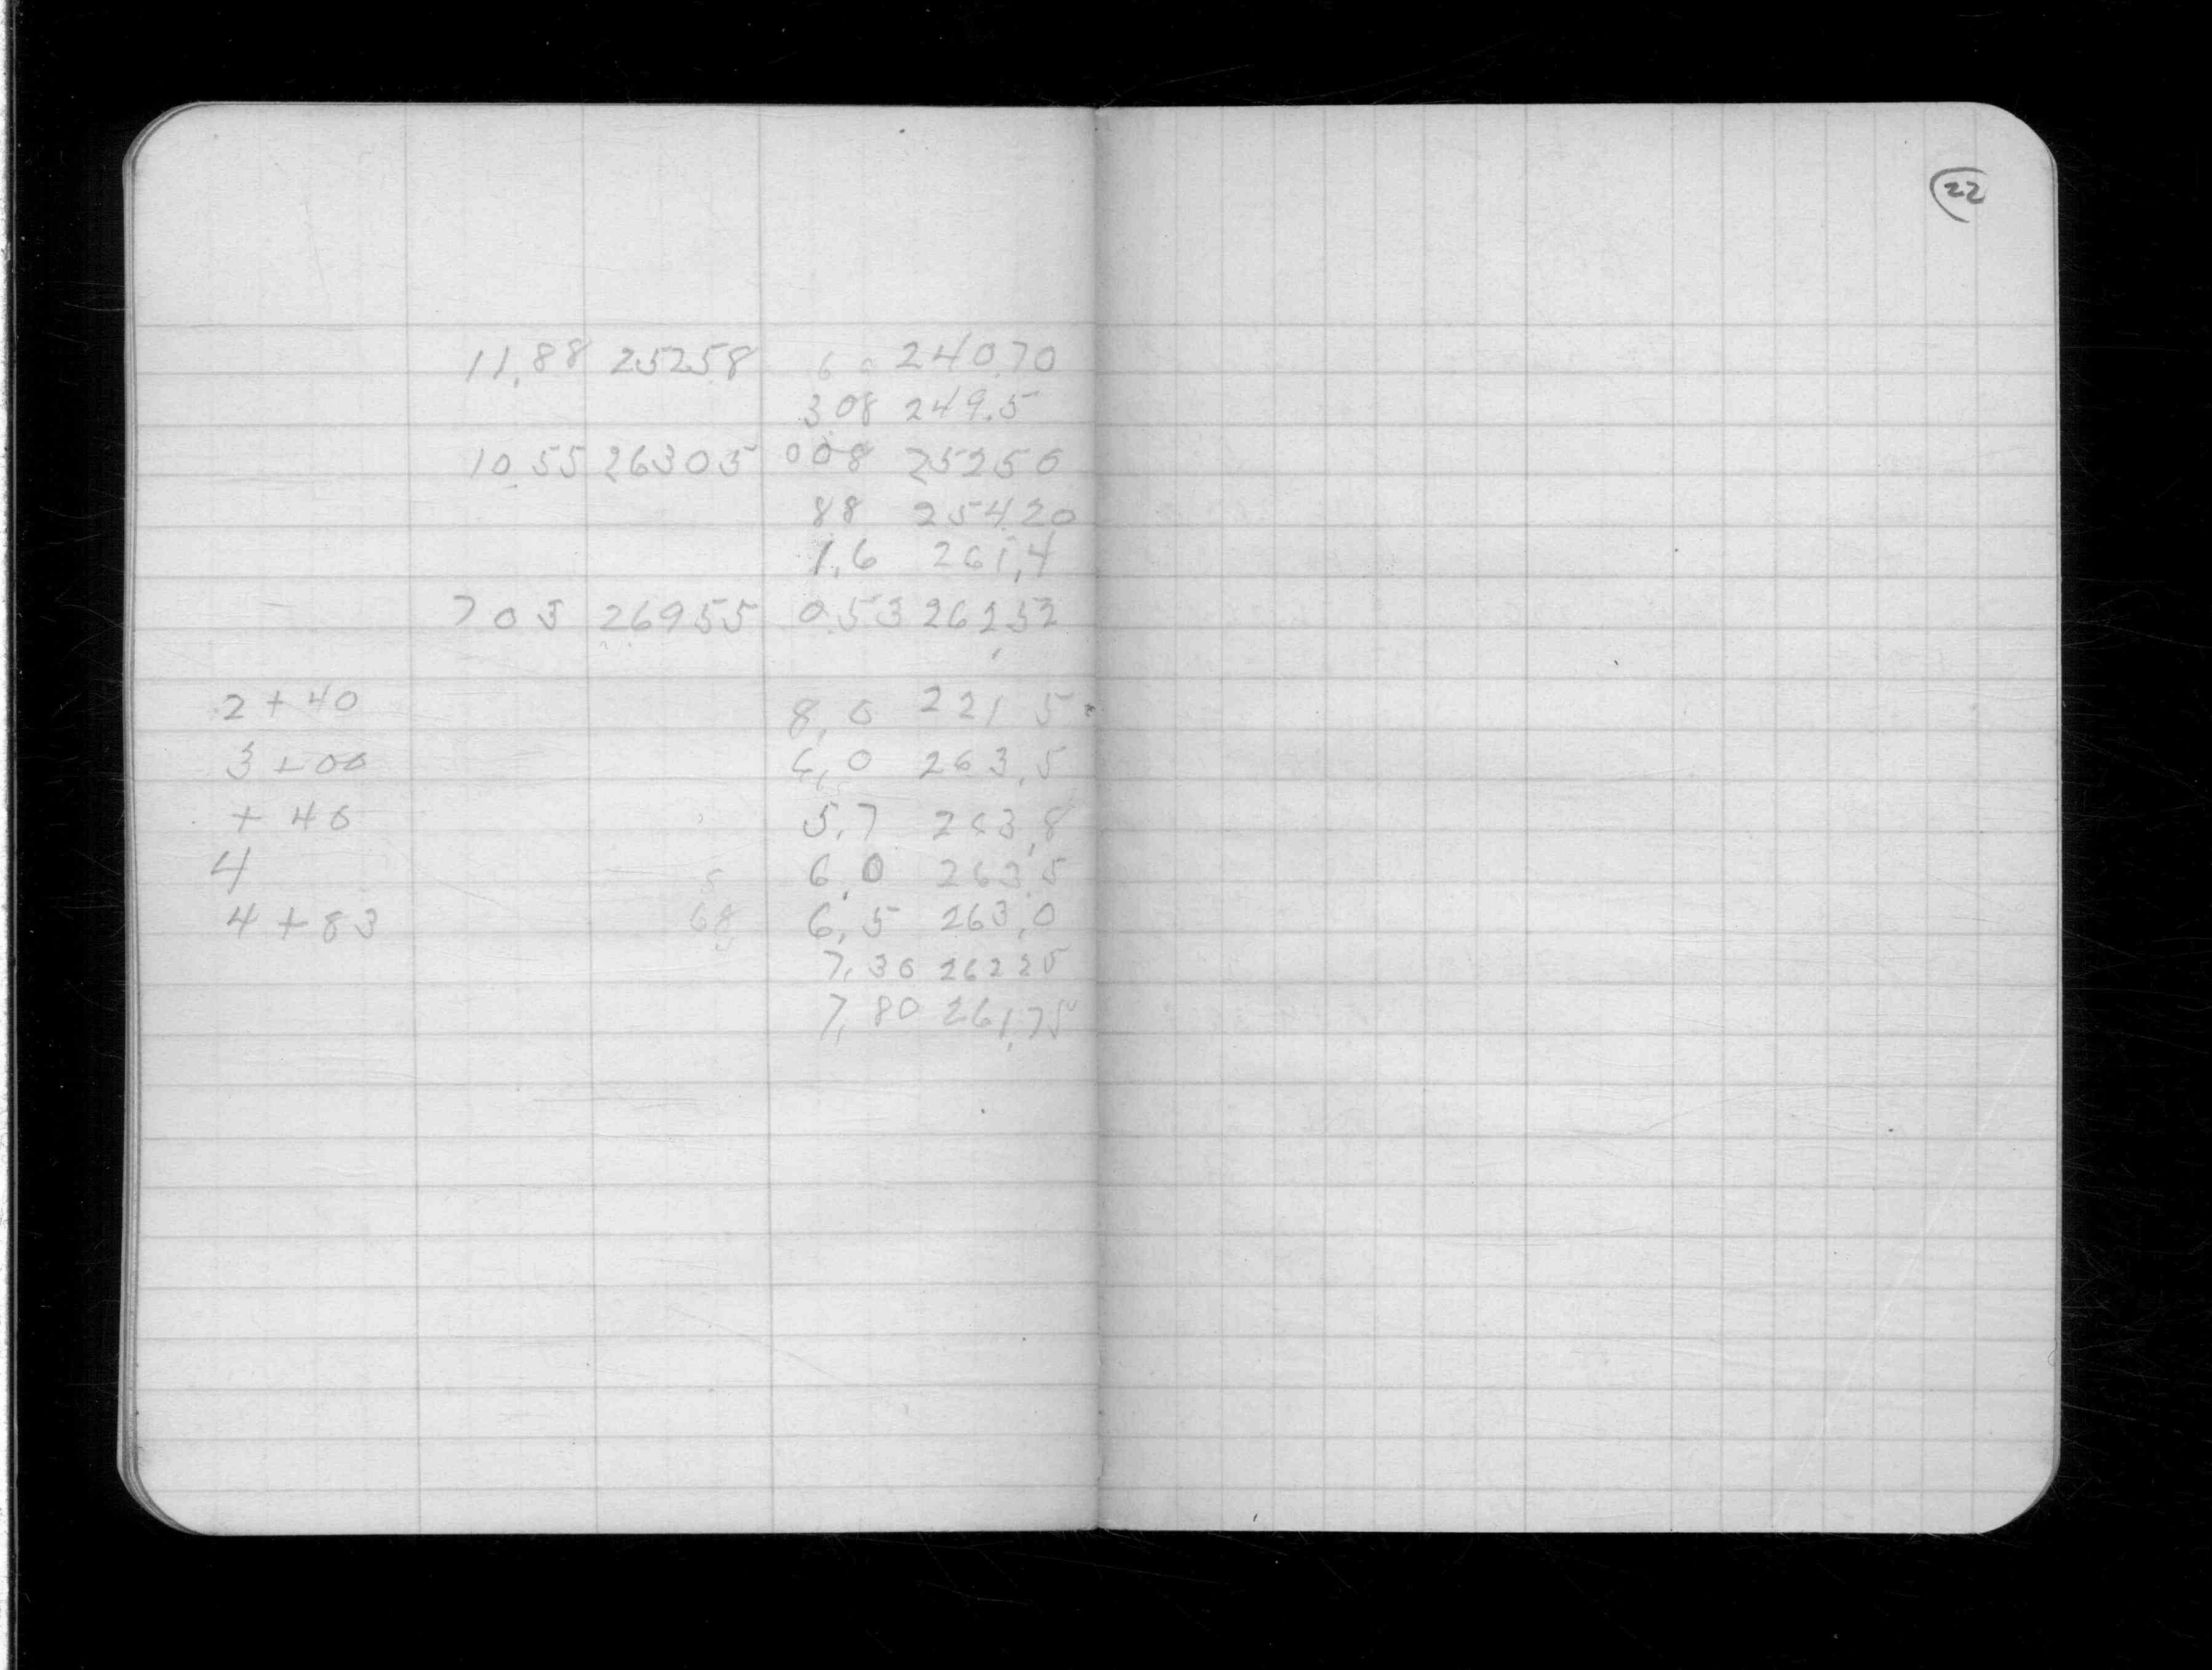 22
11.88 252.58 240.70
3.08 249.5
10.55 263.05 0.08 252.50
88 254.20
1.6 261.4
703 26955 0.53 262.52
2+40 8.0 221 5
3+00 6.0 263.5
+40 5.7 263.8
4 6.0 263.5
4+83 68 6.5 263.0
7.30 26225
7.80 261.75